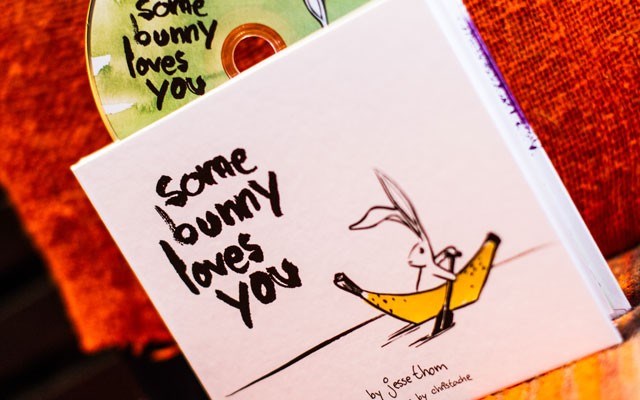 some
bunny
loves
you
some
bunny
loves
you
by jesse thom
by christache